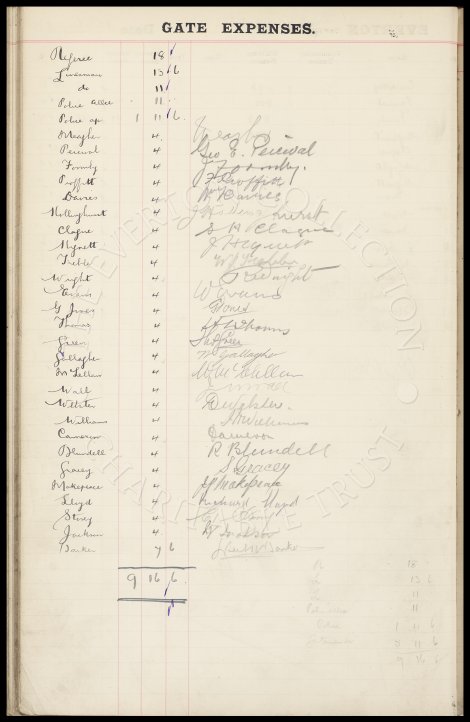 GATE EXPENSES.
Referee 18
Linesman 13 6
do 11
Police Allce 11
Police ap 1 11 6
Meagher 4
Percival 4 Geo E. Percival
Formby 4 J Formby
Proffitt 4 Proffitt
Davies 4 Davies
Hollinghurst 4
Clague 4 Clague
Hignett 4 J Hignett
Treble 4
Wright 4 Wright
Evans 4 W Evans
G Jones 4 G Jones
Thomas 4 Thomas
Green 4 Green
Gallagher 4 Gallagher
McLellan 4 McLellan
Wall 4
Webster 4 Webster.
Williams 4 Williams
Cameron 4 Cameron
Blundell 4 R Blundell
Gracey 4 S Gracey
Makepeace 4 Makepeace
Lloyd 4 Richard Lloyd
Storey 4
Jackson 4 Jackson
Barker 7 6 Barker
9 16 6
18
13 6
11
11
Police 1 11 6
5 11 6
9 16 6
EVERTON COLLECTION
CHARITABLE TRUST